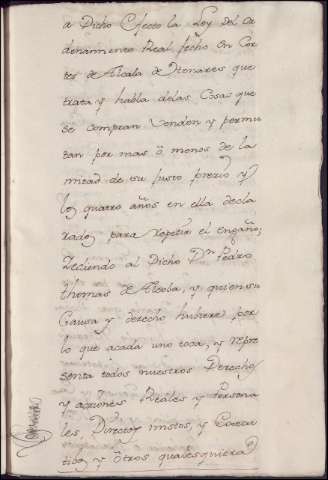 a Dicho efecto la Ley del or
denamiento Real fecho en Cor
tes de Alcala de Henares que
trata y habla delas Cosas que
se compran venden y permu
tan por mas ō menos de la
mitad de su justo precio y
los quatro años en ella decla
rados para repetir el engaño,
Zediendo al Dicho Dn. Pedro
thomas de Alcoba, y quien su
Causa y derecho hubiere por
lo que acada uno toca, y repre
senta todos nuestros Derechos
y acciones Reales y Persona
les, Directos mistos, y Execu
tibos y ōtros qualesquiera